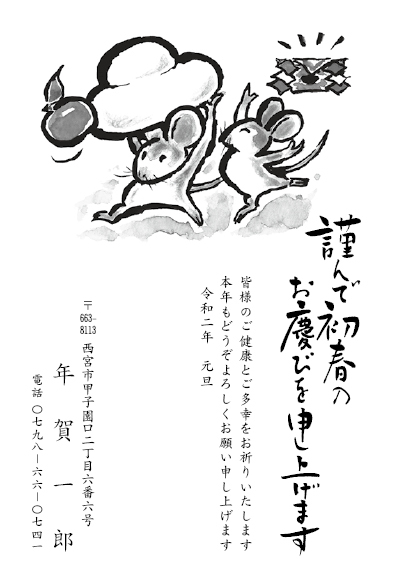 謹んで初春の
お慶びを申し上げます
皆様のご健康とご多幸をお祈りいたします
本年もどうぞよろしくお願い申し上げます
令和二年　元旦
〒663-8113
西宮市甲子園口二丁目六番六号
年賀一郎
電話〇七九八―六六―〇七四一